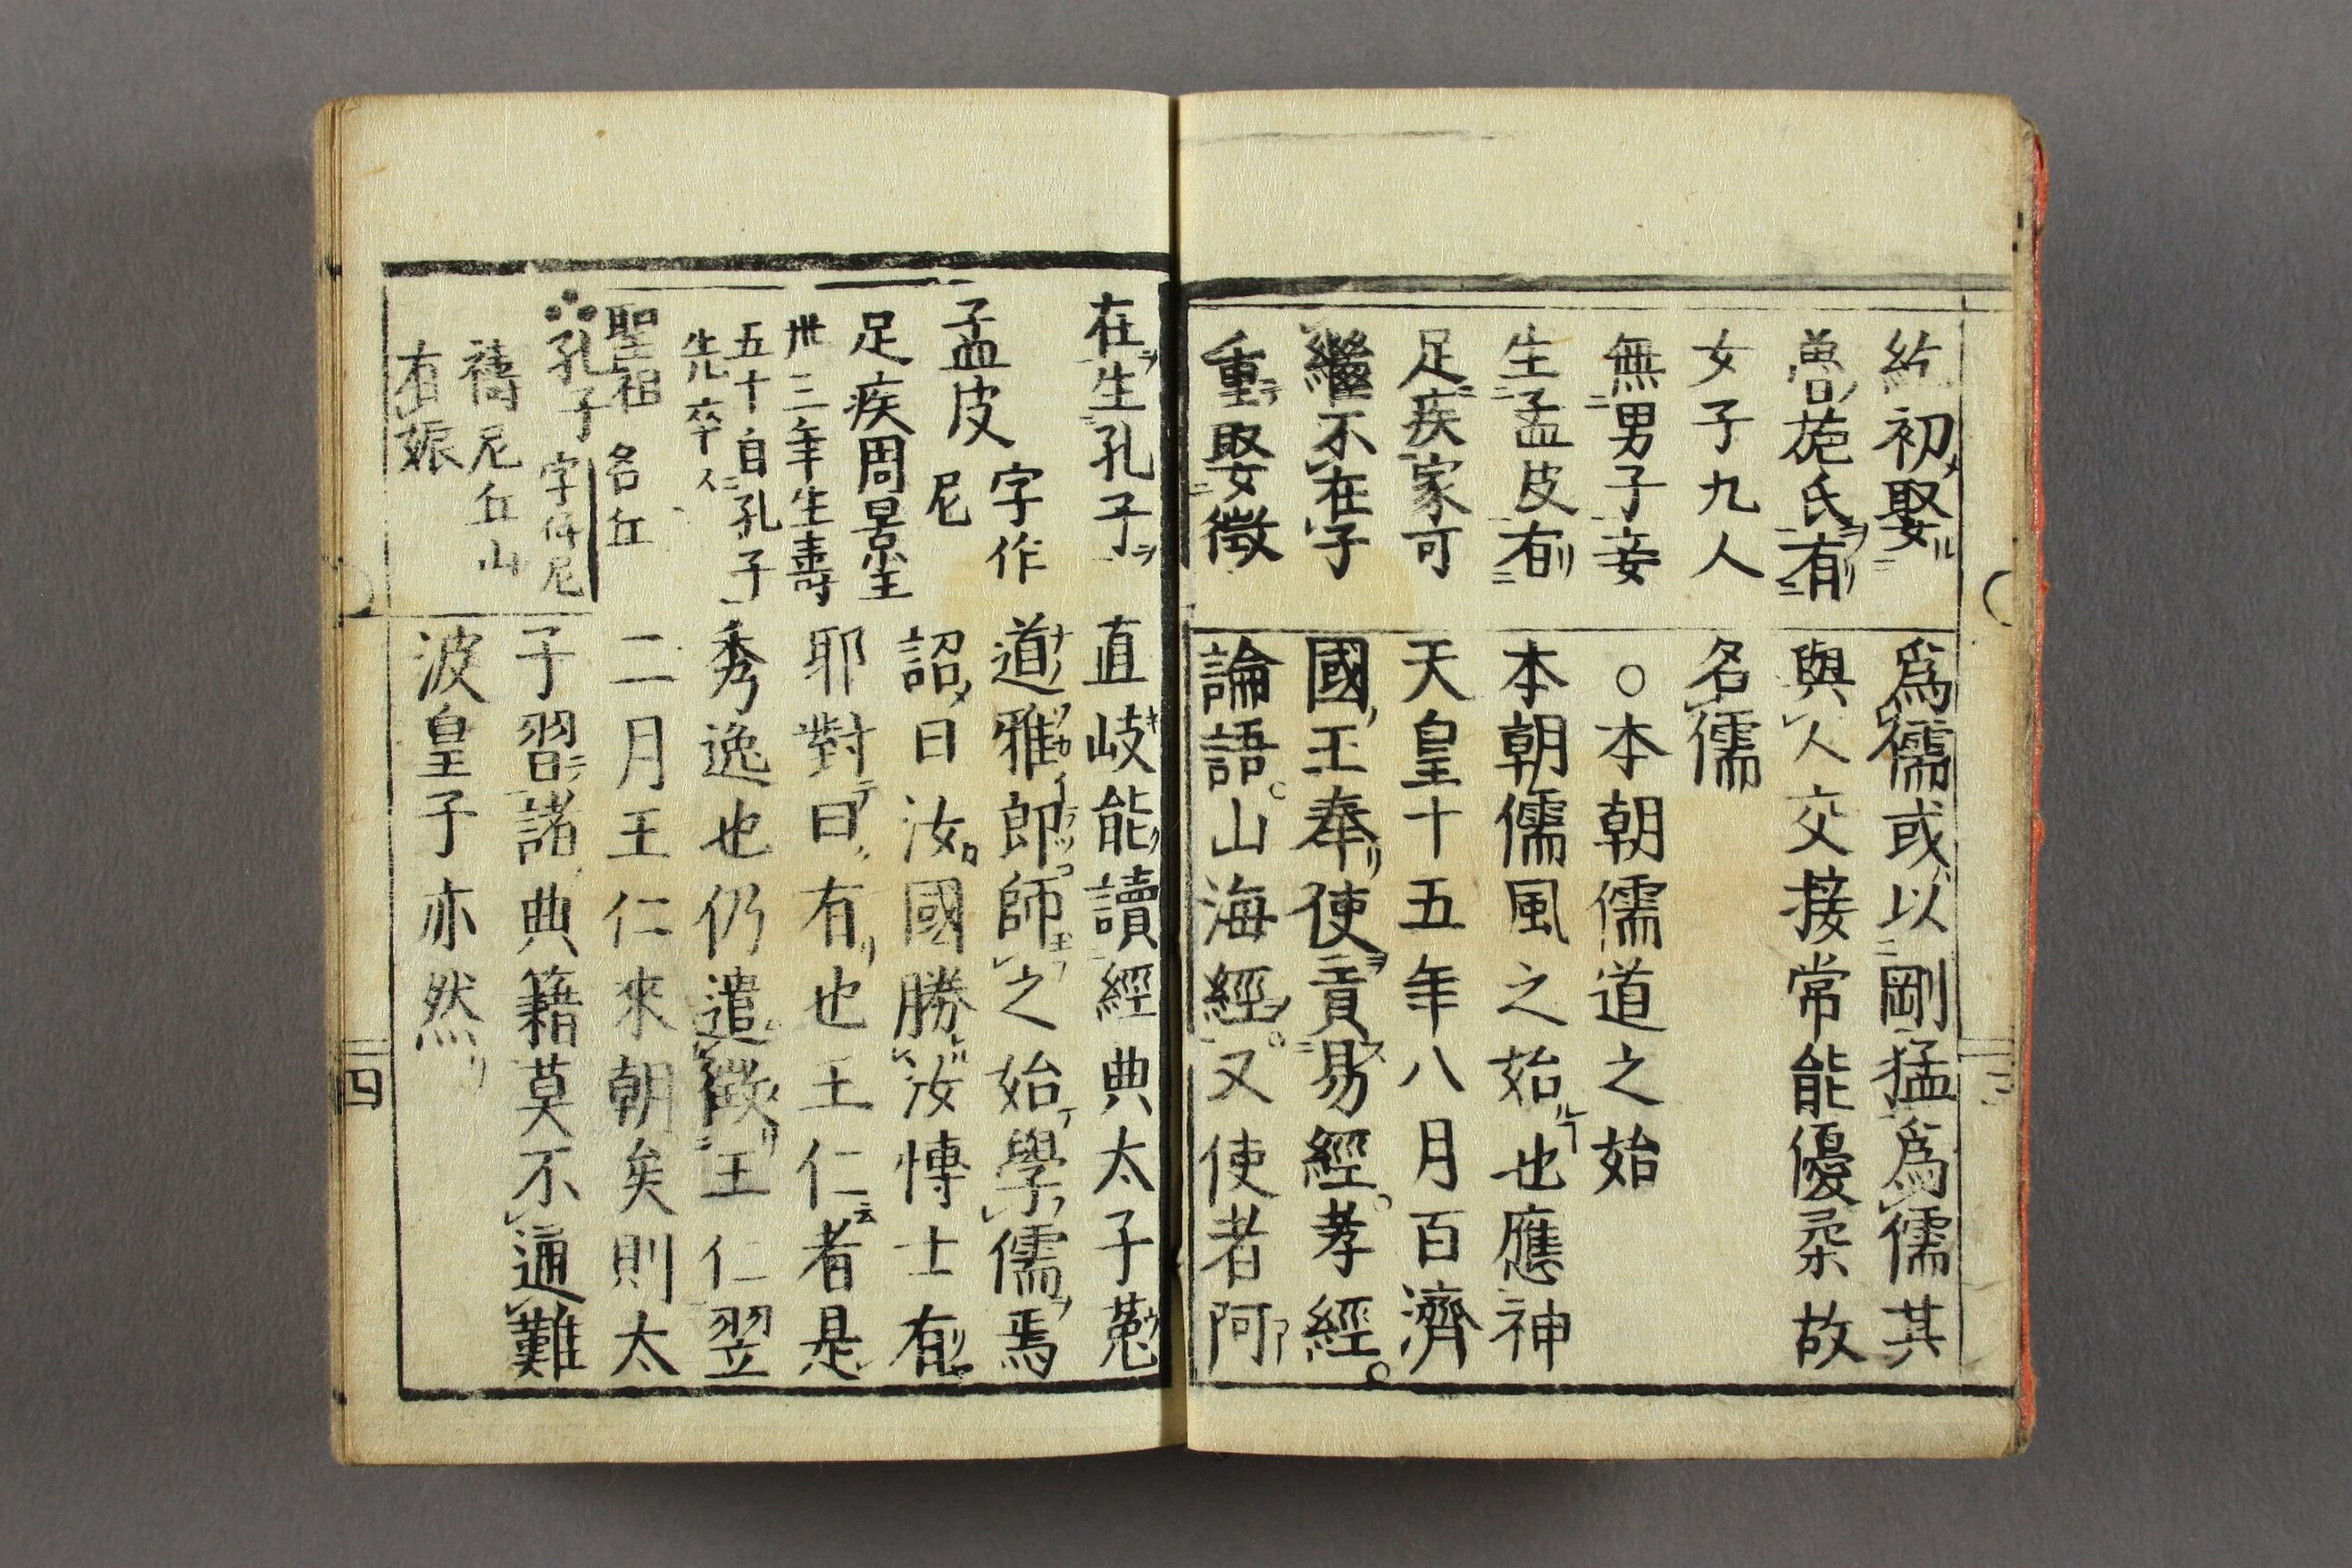 紇初娶
魯施氏有
女子九人
無男子妾
生孟皮有
足疾家可
繼不在字
重娶徴
爲儒或以剛猛爲儒其
與人交接常能優柔故
名儒
○本朝儒道之始
本朝儒風之始也應神
天皇十五年八月百濟
國王奉使貢易經。孝經。
論語。山海經。又使者阿
三
在生孔子
孟皮 字作
尼
足疾周景王
卅三年生壽
五十自孔子
先卒
聖祖 名丘
孔子 字仲尼
禱尼丘山
有娠
直岐能讀經典太子菟
道雅郎師之始學儒焉
詔曰汝國勝汝博士有
耶對曰有也王仁者是
秀逸也仍遣徴王仁翌
二月王仁來朝矣則太
子習諸典籍莫不通難
波皇子亦然
四